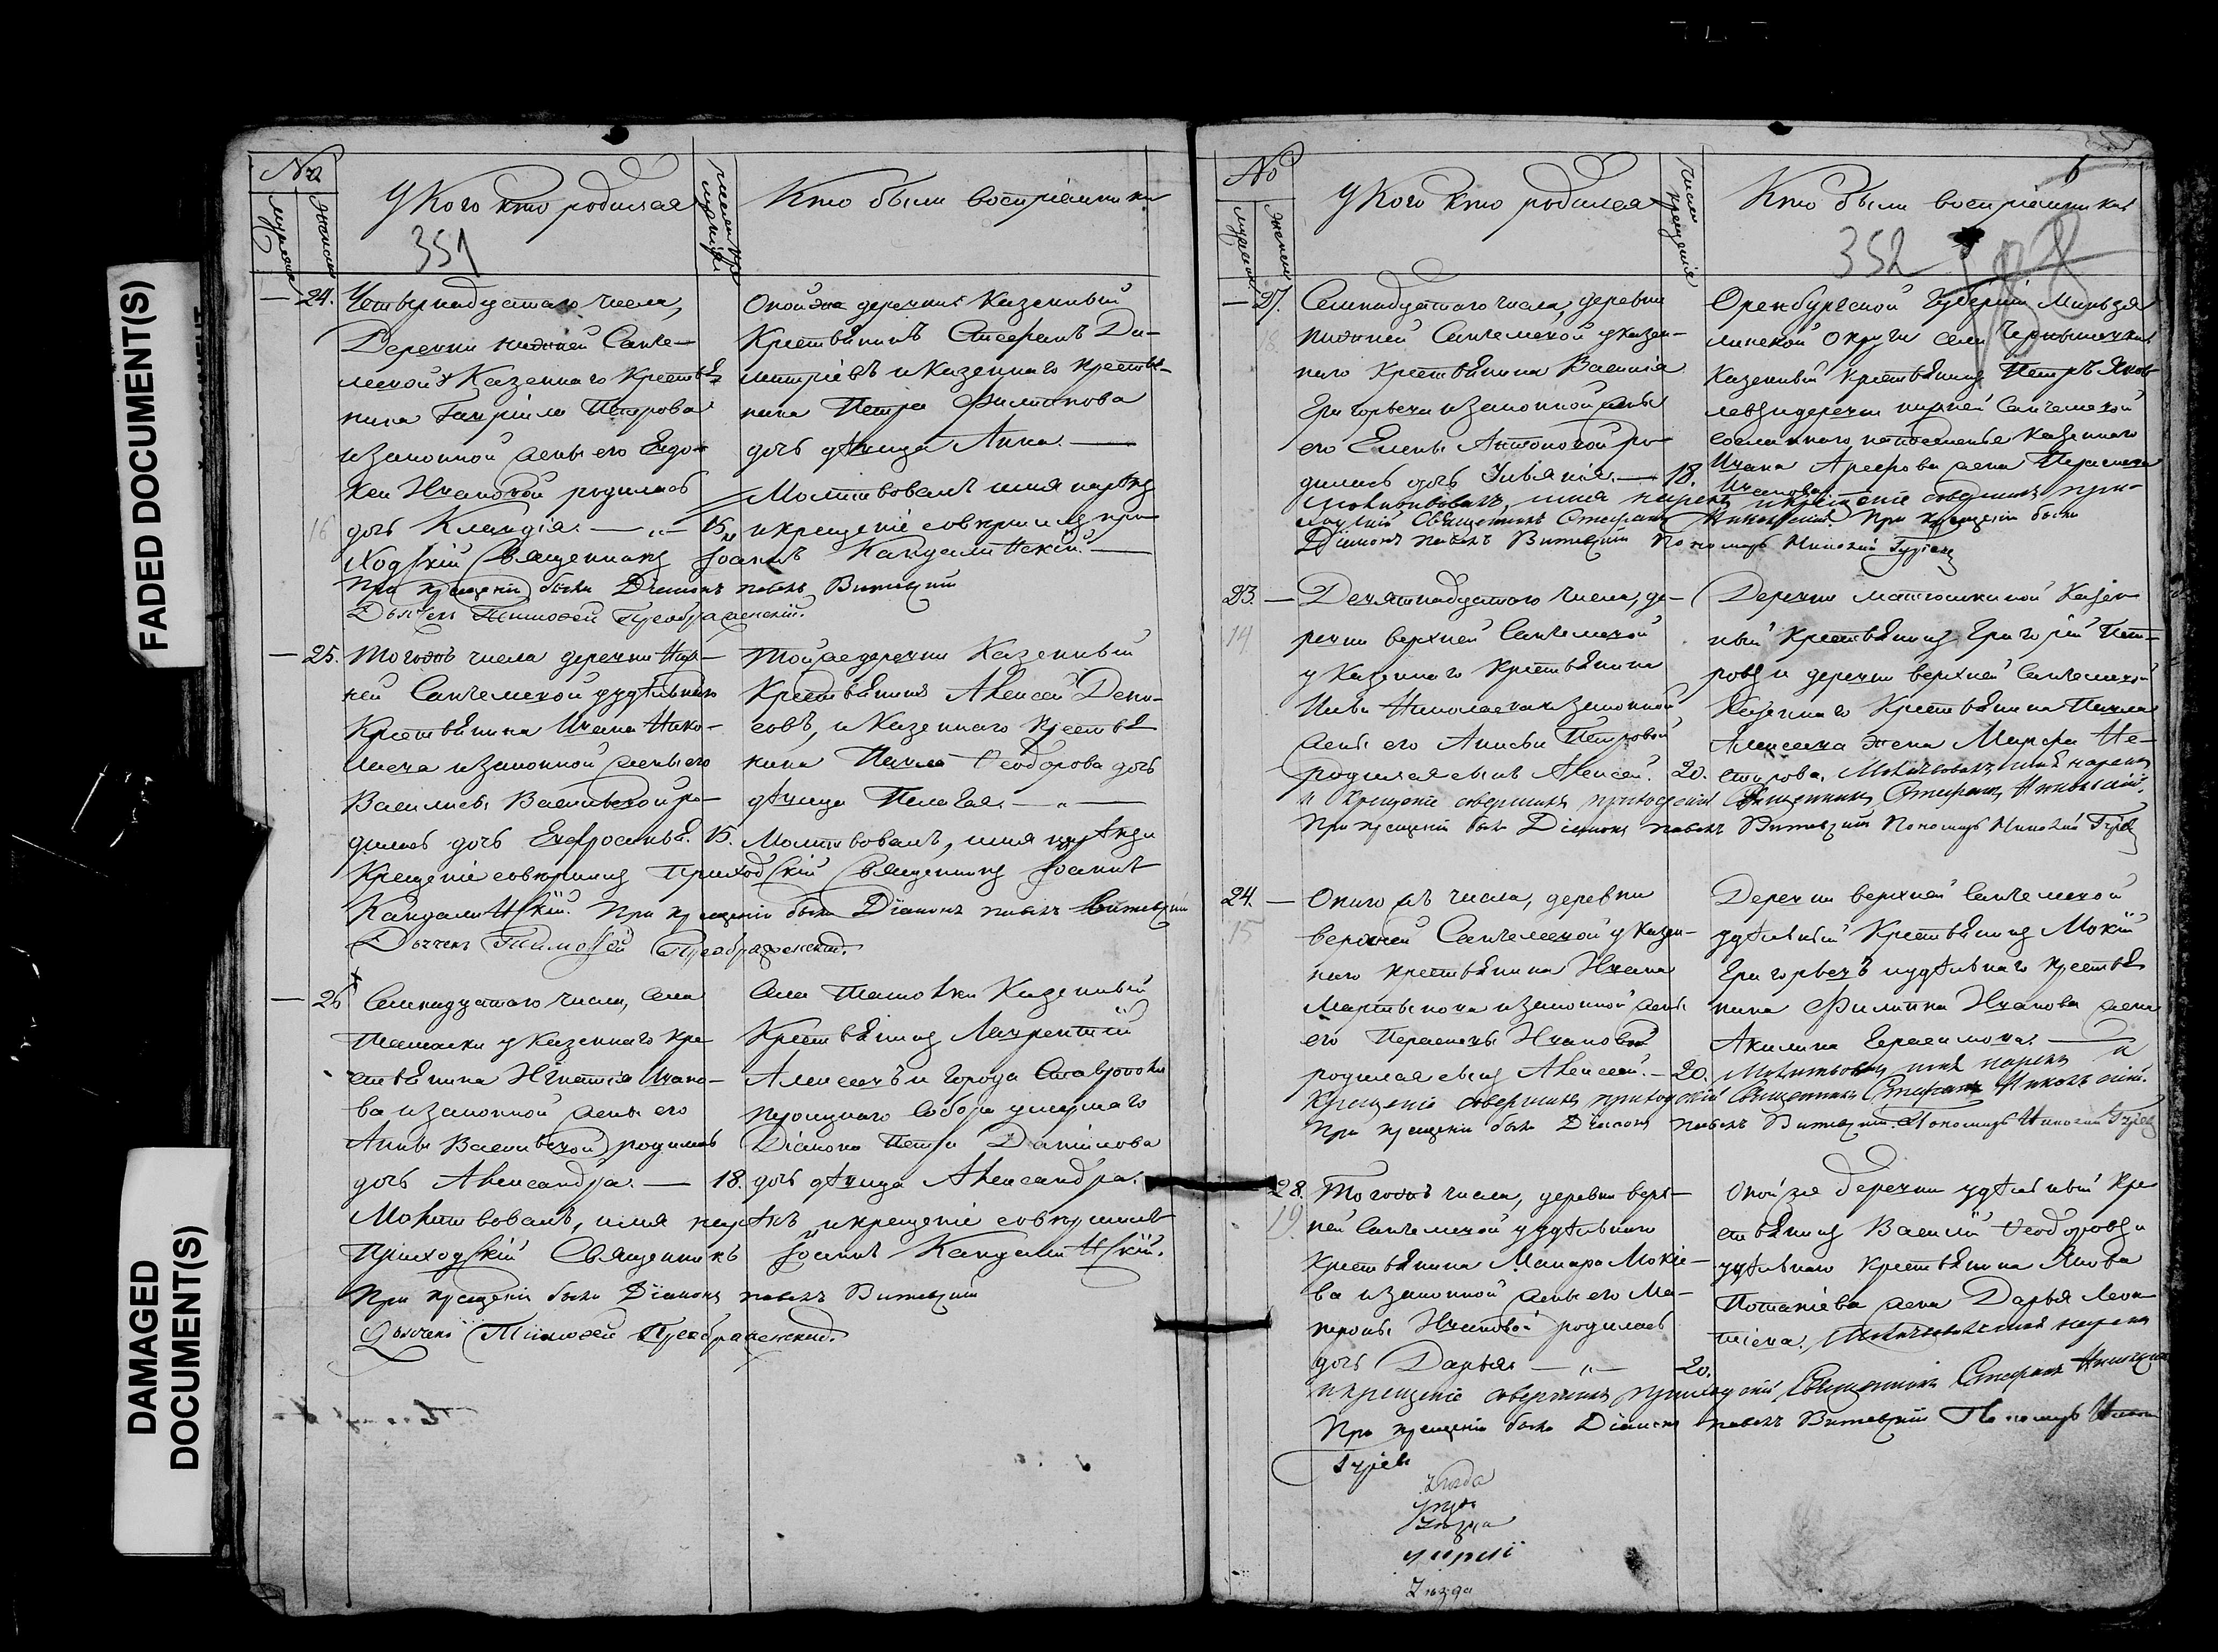 FADED DOCUMENT(S)
DAMAGED
DOCUMENT(S)
№
мужска
женска
У Кого кто родился
числа кре
Кто были воспріемники
351
— 24.
Четвернадцатаго числа,
Деревни нижней Санче-
леевой у Казеннаго Крестья-
нина Гавріила Петрова
и законной жены его Евдо-
кеи Ивановой родилась
дочь Клавдія. — „ — 15.
16
Оной же деревни Казенный
Крестьянинъ Стефанъ Ди-
митріевъ и Казеннаго крестья-
нина Петра Филипова
дочь дѣвица Анна. —
Молитвовалъ имя нарекъ
и крещеніе совершилъ при-
ходскій Священникъ Іоаннъ Кандалинскій. —
При крещеніи были Діаконъ павелъ Витевскій
Дьячекъ Тимофей Преображенскій.
— 25.
Тогожъ числа деревни Ниж-
ней Санчелеевой у удѣльнаго
Крестьянина Ивана Нико-
лаева и законной жены его
Василисы Васильевой ро-
дилась дочь Евфросинья. 15.
Тойже деревни Казенный
Крестьянинъ Алексей Дени-
совъ, и Казеннаго крестья
нина Павла Феодорова дочь
дѣвица Пелагея. — „ —
Молитвовалъ, имя нарѣкъ и
Крещеніе совершилъ Приходскій Священникъ Іоаннъ
Кандалинскій. При крещеніи были Діаконъ павелъ Витевскій
Дьячекъ Тимофей Преображенский.
— 26
Семнадцатаго числа, села
Ташолки у Казеннаго Кре-
стьянина Игнатія Ивано-
ва и законной жены его
Анны Васильевой родилась
дочь Александра. — 18.
Села Ташолки Казенный
Крестьянинъ Лаврентій
Алексеевъ и города Ставрополя
Троицкаго Собора умершаго
Діакона Петра Данилова
дочь дѣвица Александра.
Молитвовалъ, имя нарѣкъ, и крещеніе совершилъ
Приходскій Священникъ Іоаннъ Кандалинскій.
При крещеніи были Діаконъ павелъ Витевскій
Дьячекъ Тимофей Преображенский.
№
мужска
женска
У Кого кто родился
числа крещенія
Кто были воспріемники
6
352
188
— 27.
Семнадцатаго числа, деревни
нижней Санчелеевой у казен-
наго Крестьянина Василія
Григорьева и законной жены
его Елены Антоновой ро-
дилась дочь Іуліанія. — 18.
Оренбургской Губерніи Мензе
линской Округи села
Казенный Крестьянинъ Петръ Яков-
левъ и деревни нижней Санчелеевой
сосланнаго на поселенье Казеннаго
Ивана Арефова жена Параскева
Иванова.
Молитвовалъ, имя нарекъ и крещеніе совершилъ при-
ходскій Священникъ Стефанъ Никольскій. При крещеніи были
Діаконъ павелъ Витевскій Пономарь Николай Гурьевъ
23. —
14
Девятнадцатаго числа, де-
ревни верхней Санчелеевой
у Казеннаго Крестьянина
Ивана Николаева и законной
жены его Анисьи Петровой
родился сынъ Алексей. 20.
Деревни Матюшкиной Казен
ный Крестьянинъ Григорій Пет-
ровъ и деревни верхней Санчелеевой
Казеннаго Крестьянина Павла
Алексеева жена Марфа Не-
стерова. Молитвовалъ имя нарекъ
и Крещеніе совершилъ приходскій Священникъ Стефанъ Никольскій.
При крещеніи были Діаконъ павелъ Витевскій Пономарь Николай Гурьевъ
24. —
15
Онаго жъ числа, деревни
верхней Санчелеевой у Казен-
наго крестьянина Ивана
Мартынова и законной жены
его Парасковьи Ивановой
родился сынъ Алексей. — 20.
Деревни верхней Санчелеевой
удѣльный Крестьянинъ Мокій
Григорьевъ и удѣльнаго крестья
нина Филиппа Иванова жена
Акилина Герасимова. —
Молитвовалъ имя нарекъ и
Крещеніе совершилъ приходскій Священникъ Стефанъ Никольскій.
При крещеніи были Діаконъ павелъ Витевскій. Пономарь Николай Гурьевъ
28.
19.
Тогожъ числа, деревни верх-
ней Санчелеевой у удѣльнаго
Крестьянина Макара Мокіе-
ва и законной жены его Ма-
троны Ивановой родилась
дочь Дарья — „ — 20.
Оной же деревни удѣльный Кре
стьянинъ Василій Феодоровъ и
удѣльнаго Крестьянина Якова
Потапіева жена Дарья Леон
тіева. Молитвовалъ имя нарекъ
и крещеніе совершилъ приходскій Священникъ Стефанъ Никольскій
При крещеніи были Діаконъ павелъ Витевскій Пономарь Николай
Гурьевъ